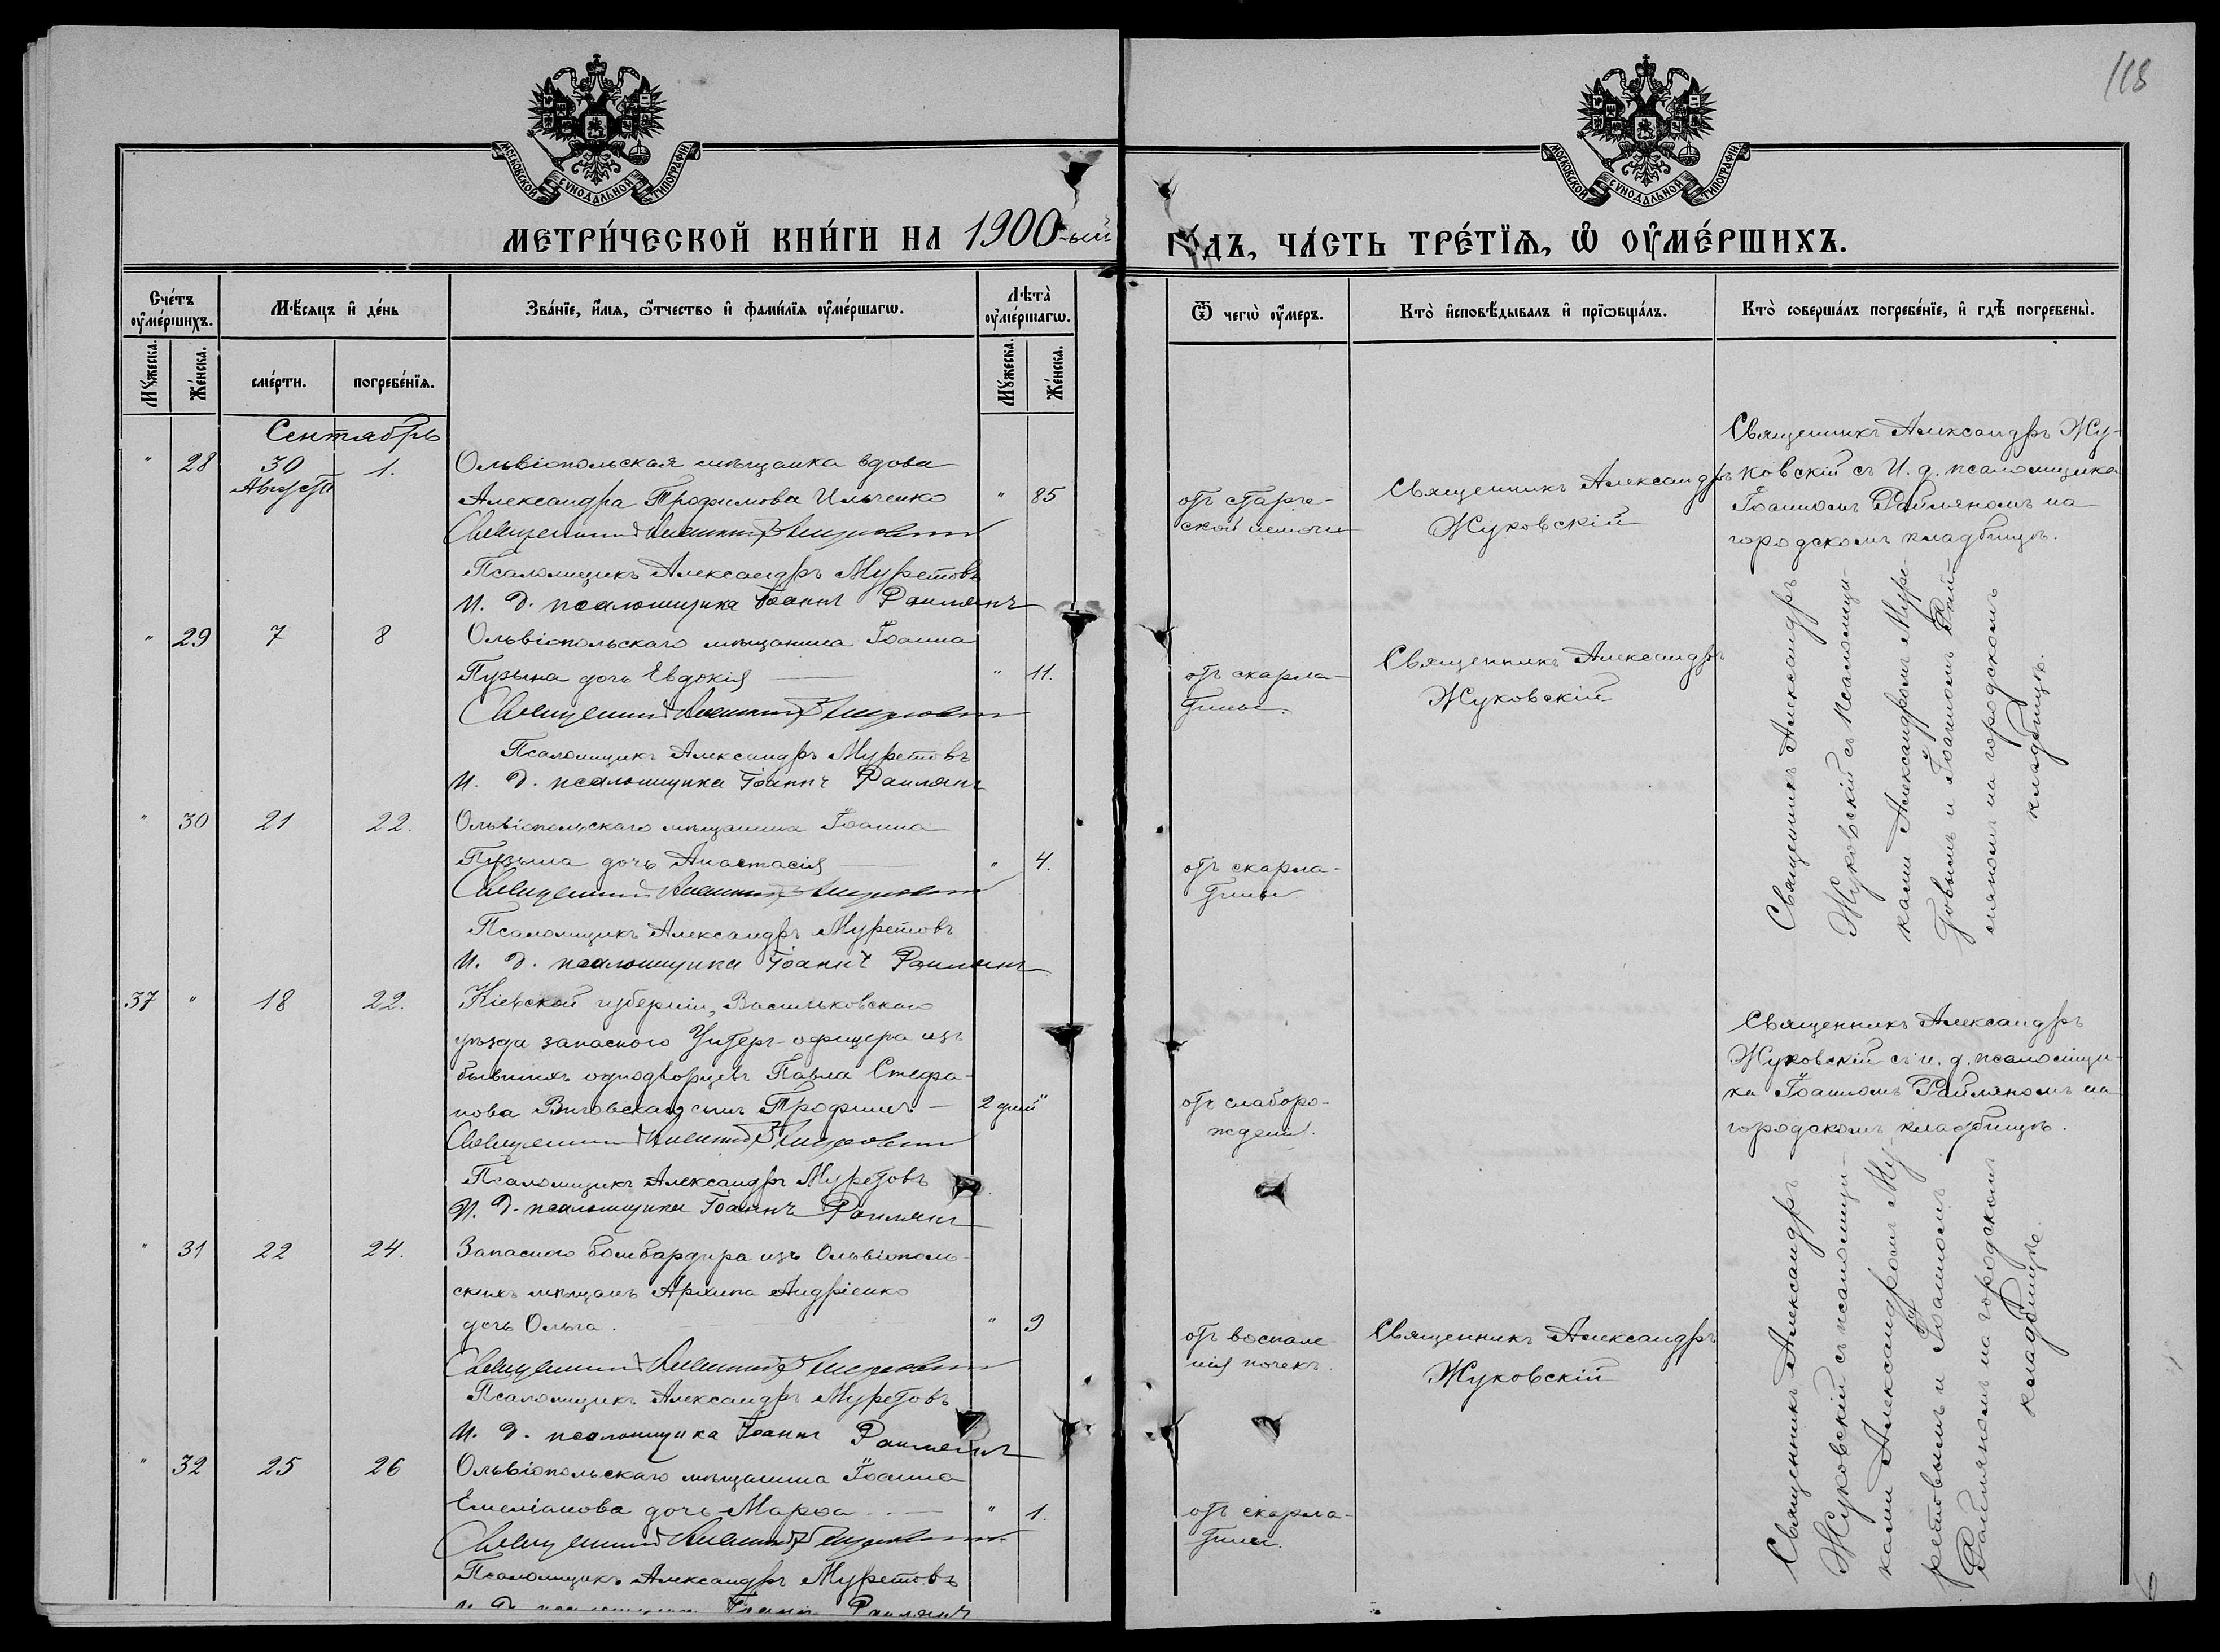 118
МОСКОВСКОЙ СѴНОДАЛЬНОЙ ТИПОГРАФІИ
МОСКОВСКОЙ СѴНОДАЛЬНОЙ ТИПОГРАФІИ
МЕТРИ́ЧЕСКОЙ КНИ́ГИ НА 1900-ый
ГО́ДЪ, ЧА́СТЬ ТРЕ́ТЇѦ, Ѽ ОУ҆МЕ́РШИХЪ.
Сче́тъ оу҆ме́ршихъ.
Мѣ́сяцъ и҆ де́нь
Зва́нїе, и҆́мѧ, ѻ҆́тчество и҆ фами́лїѧ оу҆ме́ршагѡ.
Лѣта̀ оу҆ме́ршагѡ.
Мꙋ́жеска.
Же́нска.
сме́рти.
погребе́нїѧ.
Мꙋ́жеска.
Же́нска.
Ѿ чегѡ̀ оу҆́меръ.
Кто̀ и҆сповѣ́дывалъ и҆ прїѡбща́лъ.
Кто̀ соверша́лъ погребе́нїе, и҆ гдѣ̀ погребены̀.
Сентябрь
" 28 30 Августа 1.
Ольвіопольская мѣщанка вдова
Александра Трофимова Ильченко " 85
Псаломщикъ Александръ Муретовъ
И. д. псаломщика Іоаннъ Раилянъ
отъ старче-
ской немочи
Священникъ Александръ
Жуковскій
Священникъ Александръ Жу-
ковскій съ И. д. псаломщика
Іоанномъ Райляномъ на
городскомъ кладбищѣ.
" 29 7 8
Ольвіопольскаго мѣщанина Іоанна
Пузына дочь Евдокія " 11.
Псаломщикъ Александръ Муретовъ
И. д. псаломщика Іоаннъ Раилянъ
отъ скарла-
тины.
Священникъ Александръ
Жуковскій
Священникъ Александръ
Жуковскій съ Псаломщи-
ками Александромъ Муре-
товымъ и Іоанномъ Рай-
ляномъ на городскомъ
кладбищѣ.
" 30 21 22.
Ольвіопольскаго мѣщанина Іоанна
Пузына дочь Анастасія " 4.
Псаломщикъ Александръ Муретовъ
И. д. псаломщика Іоаннъ Раилянъ
отъ скарла-
тины
37 " 18 22.
Кіевской губерніи, Васильковскаго
уѣзда запасного Унтеръ-офицера изъ
бывшихъ однодворцевъ Павла Стефа-
нова Виговскаго сынъ Трофимъ 2 дней "
Псаломщикъ Александръ Муретовъ
И. д. псаломщика Іоаннъ Раилянъ
отъ слаборо-
жденія.
Священникъ Александръ
Жуковскій съ и. д. псаломщи-
ка Іоанномъ Райляномъ на
городскомъ кладбищѣ.
" 31 22 24.
Запасного бомбардира изъ Ольвіополь-
скихъ мѣщанъ Архипа Андріенко
дочь Ольга. " 9
Псаломщикъ Александръ Муретовъ
И. д. псаломщика Іоаннъ Раилянъ
отъ воспале-
нія почекъ.
Священникъ Александръ
Жуковскій
Священникъ Александръ
Жуковскій съ псаломщи-
ками Александромъ Му-
ретовымъ и Іоанномъ
Райляномъ на городскомъ
кладбищѣ.
" 32 25 26
Ольвіопольскаго мѣщанина Іоанна
Емеліанова дочь Марѳа " 1.
Псаломщикъ Александръ Муретовъ
И. д. псаломщика Іоаннъ Раилянъ
отъ скарла-
тины.